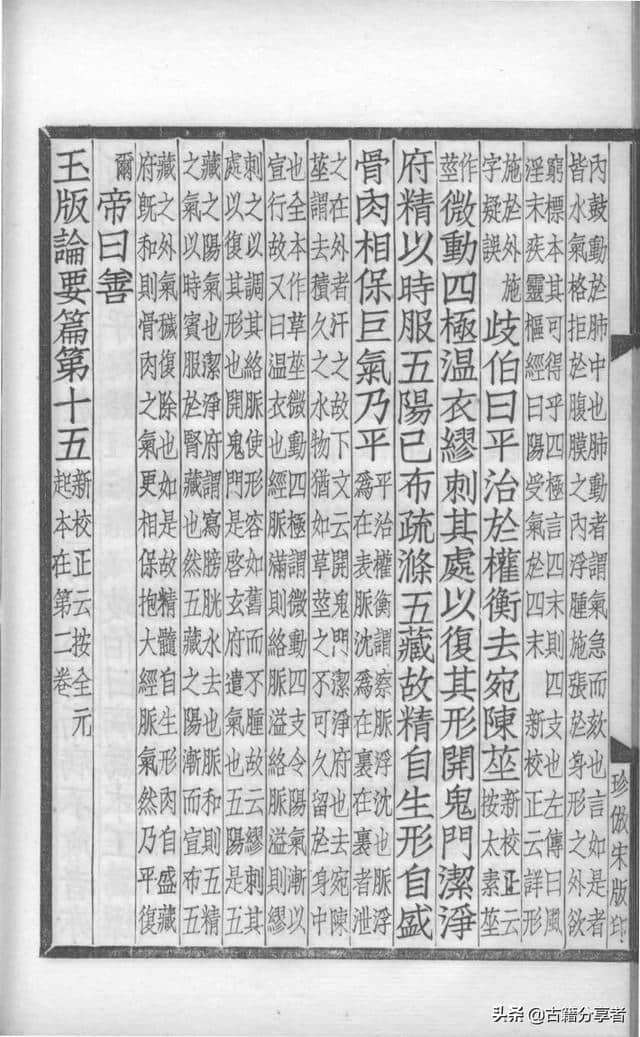 內鼓動於肺中也肺動者謂氣急而欬也言如是者
皆水氣格拒於腹膜之內浮腫施張於身形之外欲
窮標本其可得乎四極言四末則四支也左傳曰風
淫末疾靈樞經曰陽受氣於四末 新校正云詳形
施於外施
字疑誤
歧伯曰平治於權衡去宛陳莝
新校正云
按太素莝
作
莝
微動四極温衣繆刺其處以復其形開鬼門潔淨
府精以時服五陽已布疏滌五藏故精自生形自盛
骨肉相保巨氣乃平
平治權衡謂察脈浮沈也脈浮
爲在表脈沈爲在裏在裏者泄
之在外者汗之故下文云開鬼門潔淨府也去宛陳
莝謂去積久之水物猶如草莝之不可久留於身中
也全本作草莝微動四極謂微動四支令陽氣漸以
宣行故又曰温衣也經脈滿則絡脈溢絡脈溢則繆
刺之以調其絡脈使形容如舊而不腫故云繆刺其
處以復其形也開鬼門是啓玄府遣氣也五陽是五
藏之陽氣也潔淨府謂寫膀胱水去也脈和則五精
之氣以時賓服於腎藏也然五藏之陽漸而宣布五
藏之外氣穢復除也如是故精髓自生形肉自盛藏
府旣和則骨肉之氣更相保抱大經脈氣然乃平復
爾
帝曰善
玉版論要篇第十五
新校正云按全元
起本在第二卷
珍倣宋版印
头条 @古籍分享者